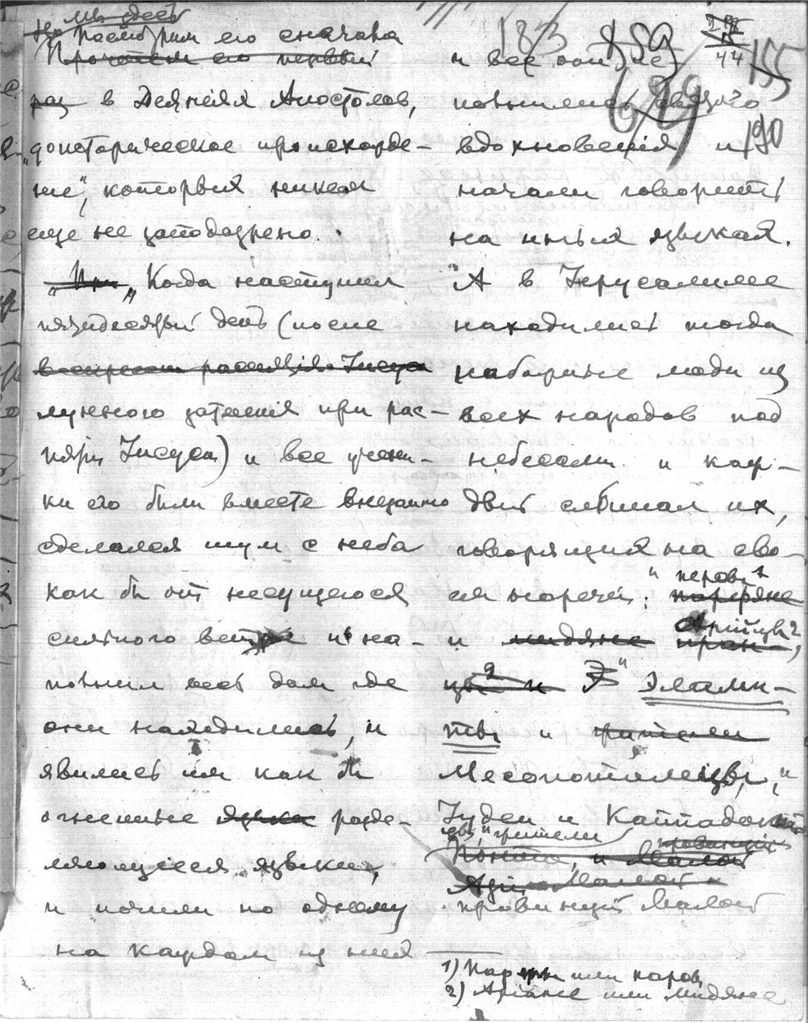 мы здесь
Но посмотрим его сначала
Прочтем его первый
раз в Деяниях Апостолов,
„доисторическое происхожде-
ние“, которых никем
еще не заподозрено.
„Когда наступил
пятидесятый день (после
воскресения распятия Иисуса
лунного затмения при рас-
пятии Иисуса) и все учени-
ки его были вместе внезапно
сделался шум с неба
как бы от несущегося
сильного ветра и на-
полнил весь дом где
они находились, и
явились им как бы
огненные языки разде-
ляющиеся языки,
и почили по одному
на каждом из них
183 159 44 155
и все они
699
исполнились святого
вдохновения и 190
начали говорить
на иных языках.
"А в Иерусалиме
находились тогда
набожные люди из
всех народов под
небесами и каж-
дый слышал их,
говорящих на сво-
ем наречии; "
парфяне
и мидяне
2
Элами-
ты и жители
Месопотамцы, "
Иудеи и Каппадок
цы, " жители
провинций
Понта, и Малой
Азии Малой
провинций Малой
1) Парфяне или
2) Ариане или мидяне